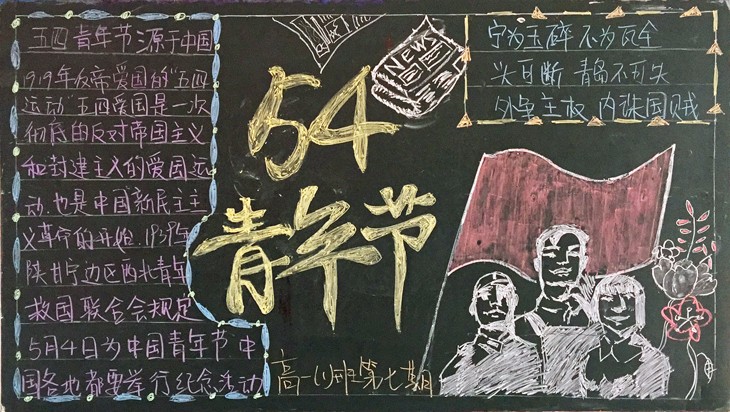 五四青年节源于中国
1919年反帝爱国的"五四
运动"五四爱国是一次
彻底的反对帝国主义
和封建主义的爱国运
动.也是中国新民主主
义革命的开始.1939年
陕甘宁边区西北青年
救国联合会规定
5月4日为中国青年节中
国各地都要举行纪念活动
NEWS
54
青年节
高一(1)班第七期
宁为玉碎 不为瓦全
头可断 青岛不可失
外争主权 内殊国贼